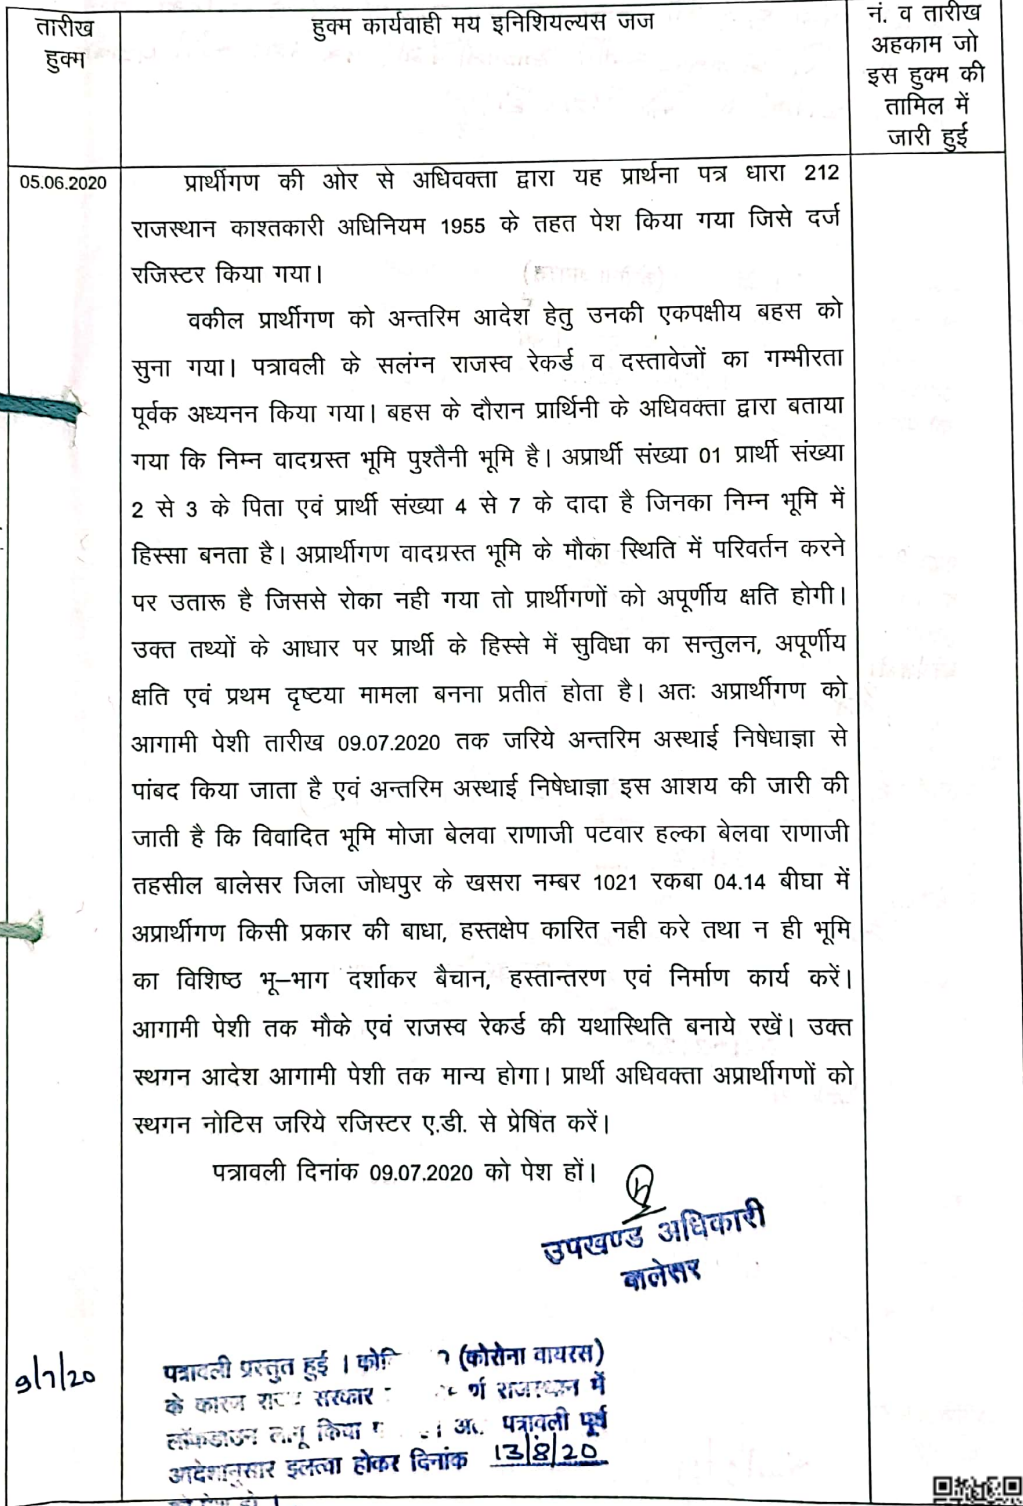 तारीख
हुक्म
हुक्म कार्यवाही मय इनिशियल्यस जज
नं. व तारीख
अहकाम जो
इस हुक्म की
तामिल में
जारी हुई
05.06.2020
प्रार्थीगण की ओर से अधिवक्ता द्वारा यह प्रार्थना पत्र धारा 212
राजस्थान काश्तकारी अधिनियम 1955 के तहत पेश किया गया जिसे दर्ज
रजिस्टर किया गया।
वकील प्रार्थीगण को अन्तरिम आदेश हेतु उनकी एकपक्षीय बहस को
सुना गया। पत्रावली के सलंग्न राजस्व रेकर्ड व दस्तावेजों का गम्भीरता
पूर्वक अध्यनन किया गया। बहस के दौरान प्रार्थिनी के अधिवक्ता द्वारा बताया
गया कि निम्न वादग्रस्त भूमि पुश्तैनी भूमि है। अप्रार्थी संख्या 01 प्रार्थी संख्या
2 से 3 के पिता एवं प्रार्थी संख्या 4 से 7 के दादा है जिनका निम्न भूमि में
हिस्सा बनता है। अप्रार्थीगण वादग्रस्त भूमि के मौका स्थिति में परिवर्तन करने
पर उतारू है जिससे रोका नही गया तो प्रार्थीगणों को अपूर्णीय क्षति होगी।
उक्त तथ्यों के आधार पर प्रार्थी के हिस्से में सुविधा का सन्तुलन, अपूर्णीय
क्षति एवं प्रथम दृष्टया मामला बनना प्रतीत होता है। अतः अप्रार्थीगण को
आगामी पेशी तारीख 09.07.2020 तक जरिये अन्तरिम अस्थाई निषेधाज्ञा से
पांबद किया जाता है एवं अन्तरिम अस्थाई निषेधाज्ञा इस आशय की जारी की
जाती है कि विवादित भूमि मोजा बेलवा राणाजी पटवार हल्का बेलवा राणाजी
तहसील बालेसर जिला जोधपुर के खसरा नम्बर 1021 रकबा 04.14 बीघा में
अप्रार्थीगण किसी प्रकार की बाधा, हस्तक्षेप कारित नही करे तथा न ही भूमि
का विशिष्ठ भू–भाग दर्शाकर बैचान, हस्तान्तरण एवं निर्माण कार्य करें।
आगामी पेशी तक मौके एवं राजस्व रेकर्ड की यथास्थिति बनाये रखें। उक्त
स्थगन आदेश आगामी पेशी तक मान्य होगा। प्रार्थी अधिवक्ता अप्रार्थीगणों को
स्थगन नोटिस जरिये रजिस्टर ए.डी. से प्रेषित करें।
पत्रावली दिनांक 09.07.2020 को पेश हों।
उपखण्ड अधिकारी
बालेसर
9/7/20
पत्रावली प्रस्तुत हुई । (कोरोना वायरस)
के कारण सरकार राजस्थान में
लॉकडाउन लागू किया पत्रावली पूर्व
आदेशानुसार इलत्वा होकर दिनांक 13/8/20